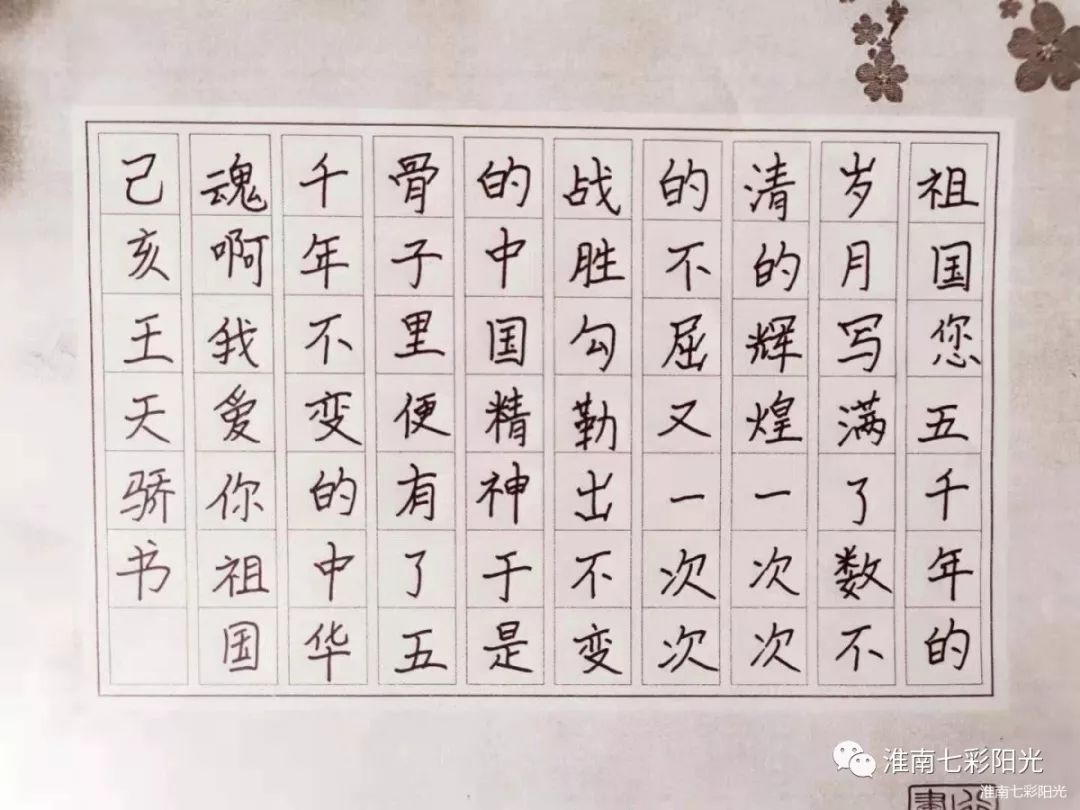 祖国您五千年的
岁月写满了数不
清的辉煌一次次
的不屈又一次次
战胜勾勒出不变
的中国精神于是
骨子里便有了五
千年不变的中华
魂啊我爱你祖国
己亥王天骄书
淮南七彩阳光
淮南七彩阳光